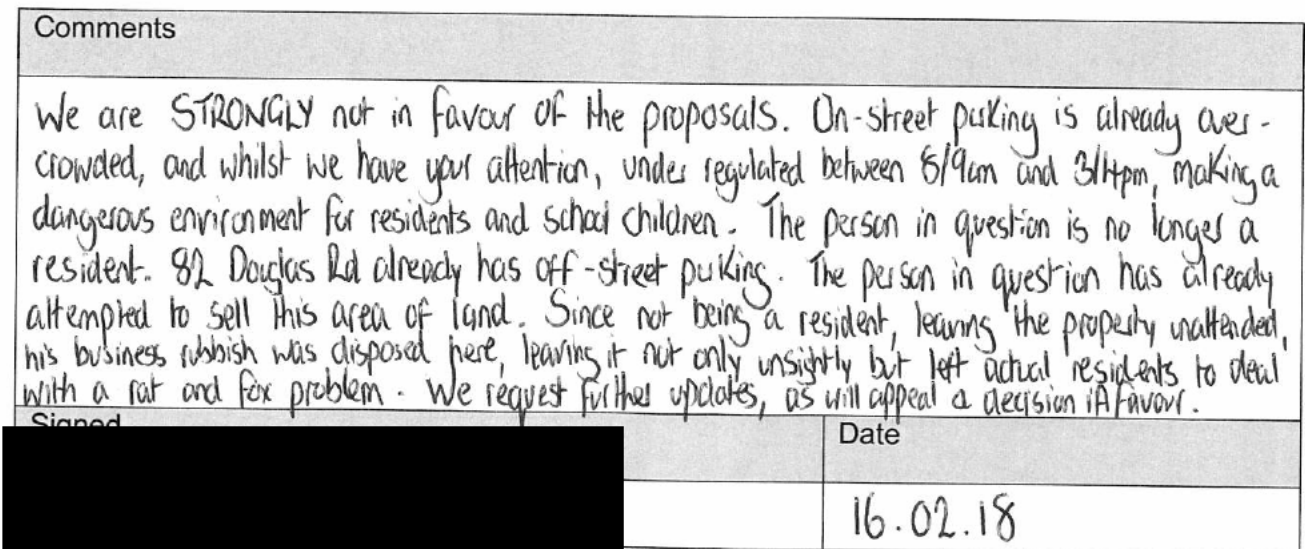 Comments
We are STRONGLY not in favour of the proposals. On-street parking is already over-
crowded, and whilst we have your attention, under regulated between 8/9am and 3/4pm, making a
dangerous environment for residents and school children. The person in question is no longer a
resident. 82 Douglas Rd already has off-street parking. The person in question has already
attempted to sell this area of land. Since not being a resident, leaving the property unattended,
his business rubbish was disposed here, leaving it not only unsightly but left actual residents to deal
with a rat and fox problem. We request further updates, as will appeal a decision in favour.
Signed
Date
16.02.18